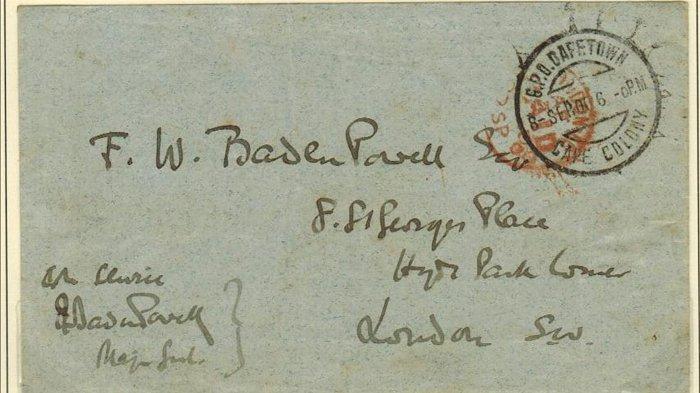 G.P.O. CAPETOWN
8-SEP.00 6-0P.M
CAPE COLONY
F. W. Baden Powell
8. St Georges Place
Hyde Park Corner
London SW.
On Service
BadenPowell
Major Genl.